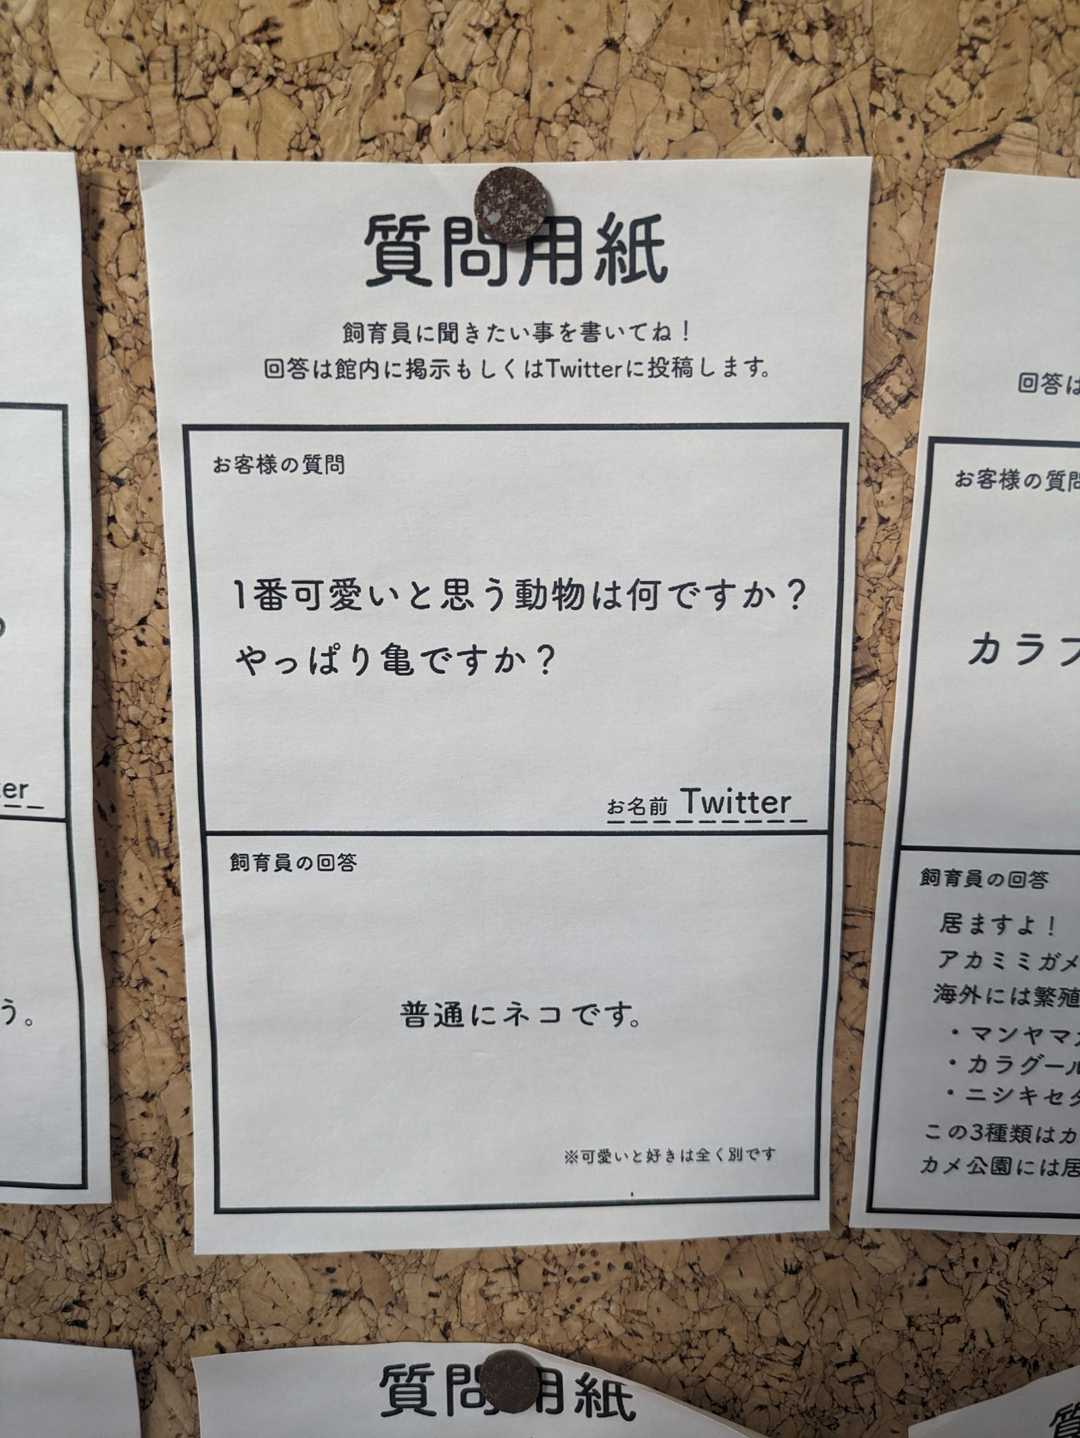 質問用紙
飼育員に聞きたい事を書いてね！
回答は館内に掲示もしくはTwitterに投稿します。
お客様の質問
1番可愛いと思う動物は何ですか？
やっぱり亀ですか？
お名前 Twitter
飼育員の回答
普通にネコです。
※可愛いと好きは全く別です
う。
回答は
お客様の質問
カラフ
飼育員の回答
居ますよ！
アカミミガメ
海外には繁殖
・マンヤマ
・カラグール
・ニシキセタ
この3種類はカ
カメ公園には居
質問用紙